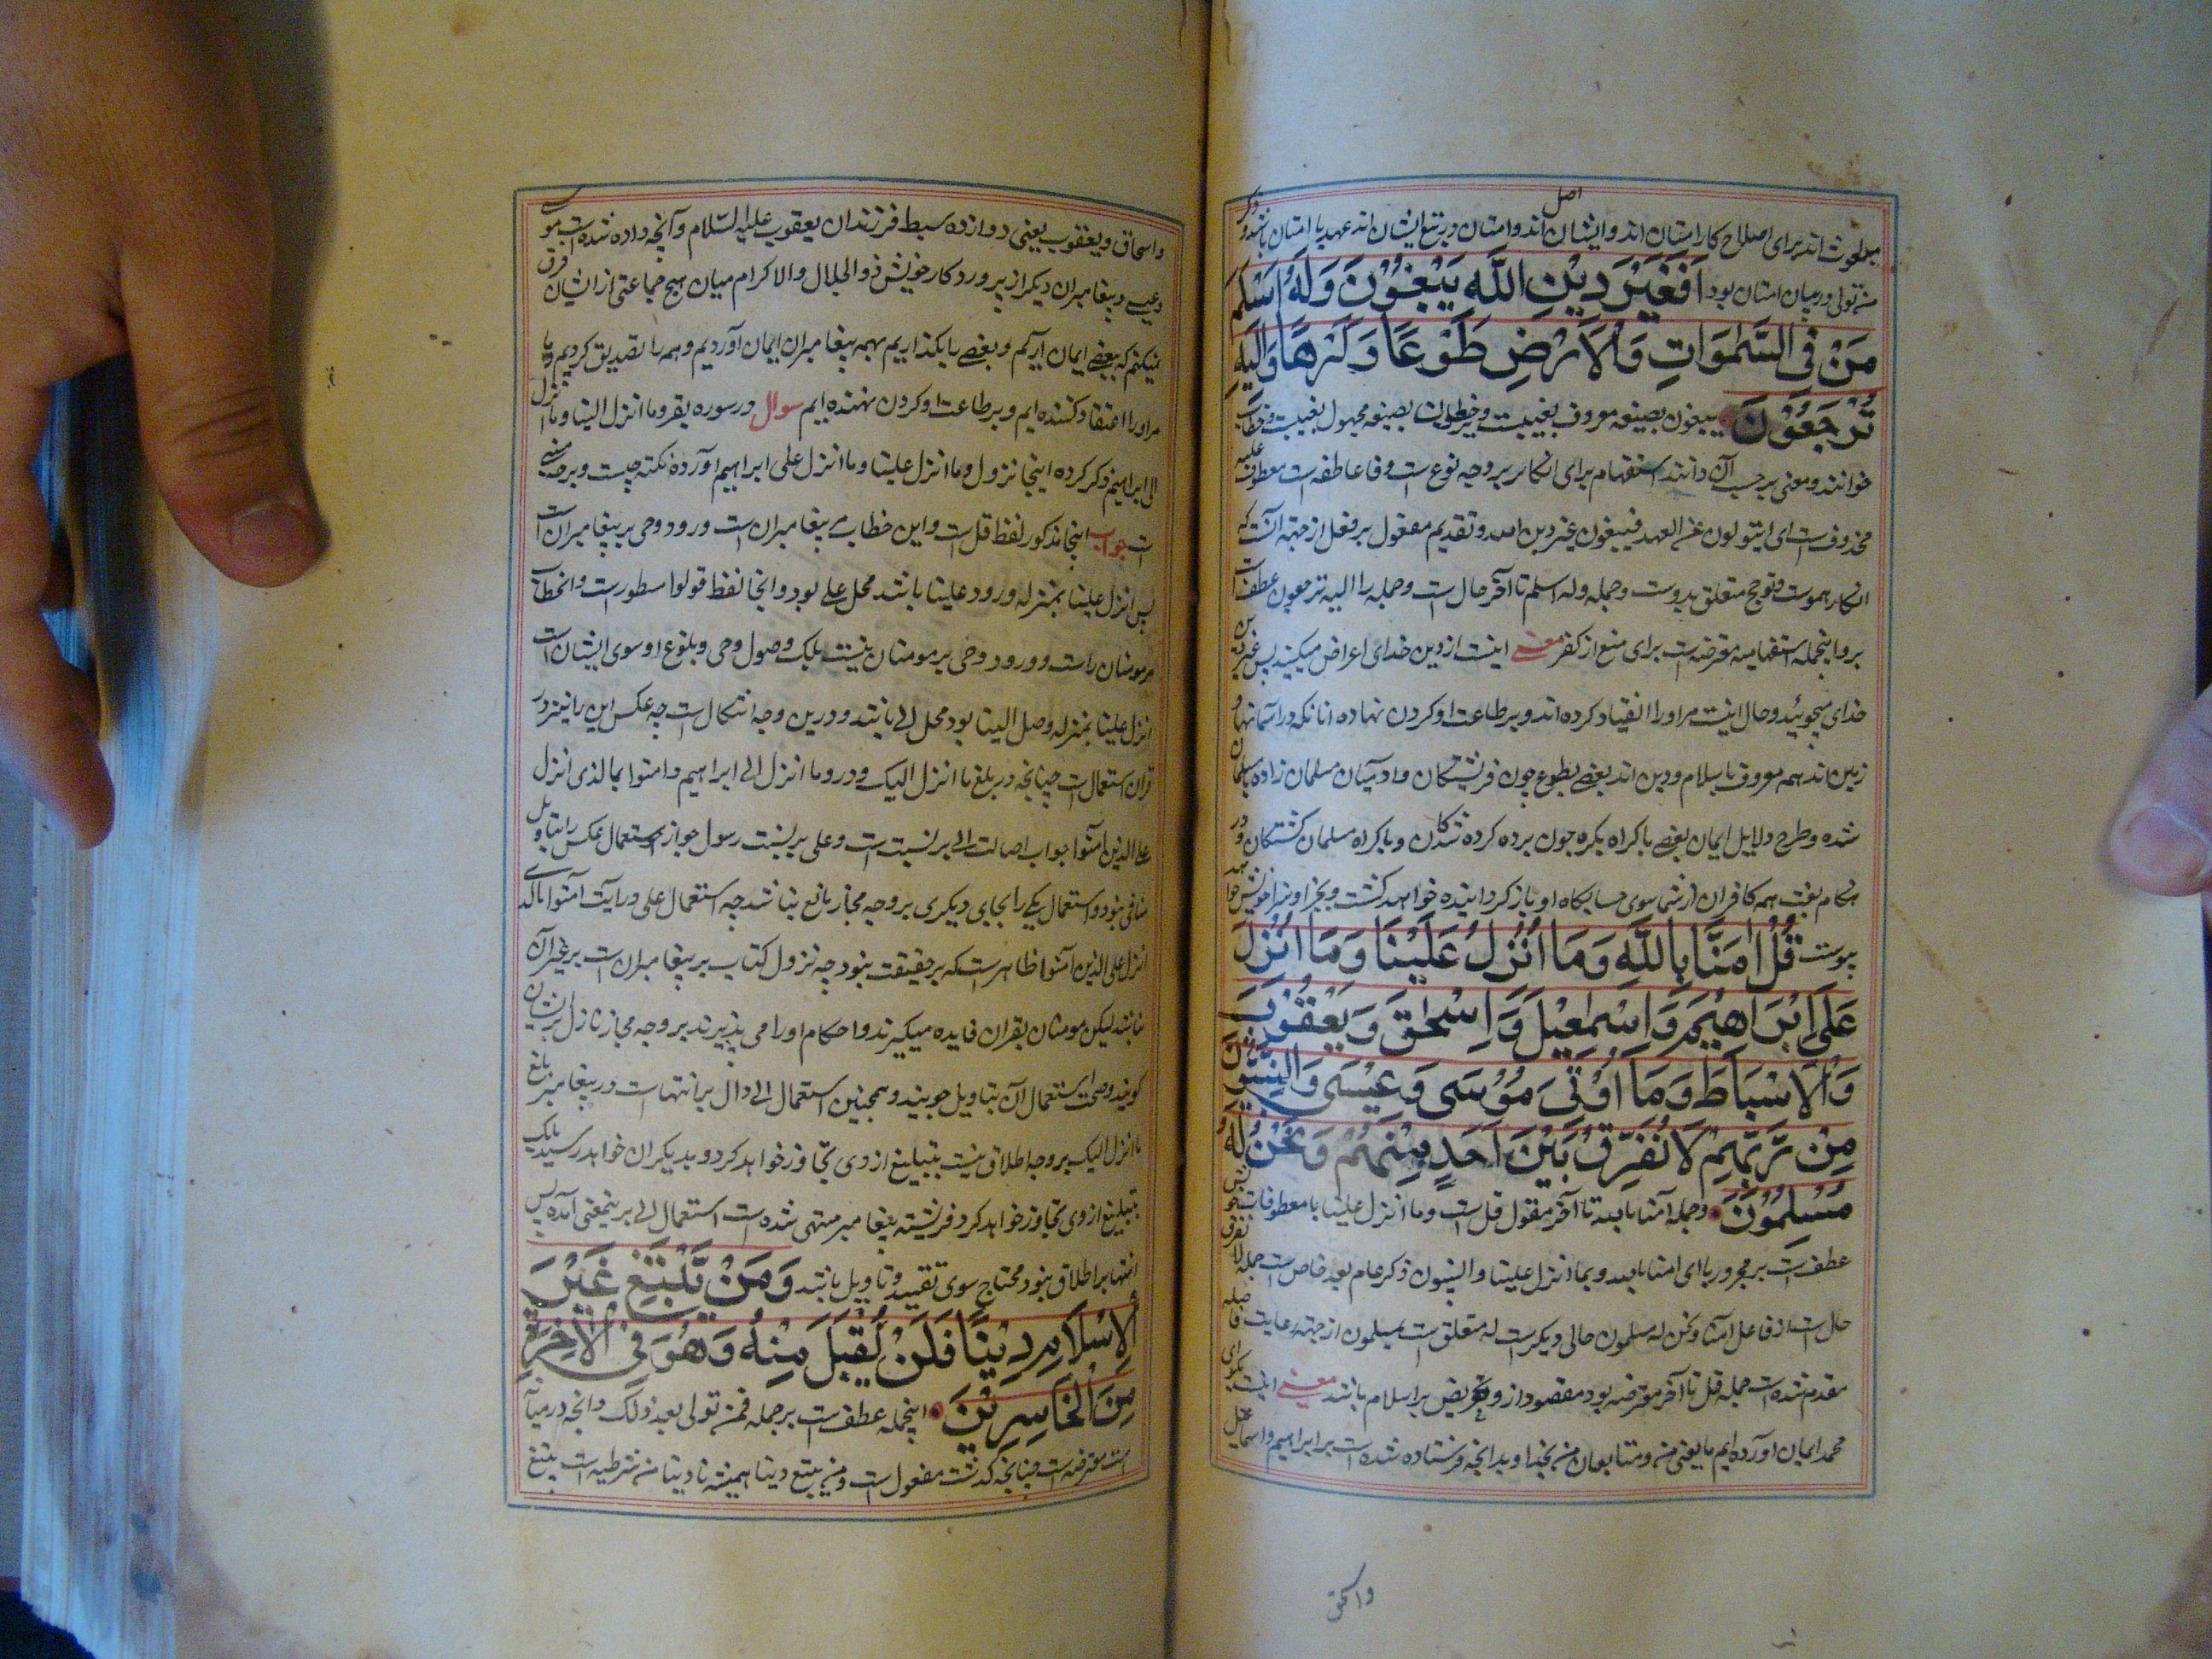 مبعوث اند برای اصلاح کار امتان اند و ایشان اصل اند و امتان در تبع ایشان اند عهد با امتان باشد و ذکر
من تولی در میان امتان بود اَفَغَيْرَ دِيْنِ اللّٰهِ يَبْغُوْنَ وَلَهٗ اَسْلَمَ
مَنْ فِي السَّمٰوَاتِ وَالْاَرْضِ طَوْعًا وَكَرْهًا وَاِلَيْهِ
تُرْجَعُوْنَ یبغون بصیغه معروف بغیبت و خطاب و ترجعون بصیغه مجهول بغیبت و خطاب
خوانند و معنی بر حسب آن دانند استفهام برای انکار بر وجه توع است و فا عاطفه است معطوف علیه
محذوف است ای ایتولون عن العهد فیبغون غیر دین الله و تقدیم مفعول بر فعل از جهت آنست که
انکار هموست و توبیخ متعلق بدوست و جمله وله اسلم تا آخر حال است و جمله را الیه ترجعون عطف است
برو اینجمله استفهامیه معترضه است برای منع از کفر معنی اینست از دین خدای اعراض میکنید پس غیر دین
خدای میجوئید و حال اینست مر او را انقیاد کرده اند و بر طاعت او کردن نهاده انانکه در آسمانها و
زمین اند همه معروف باسلام و دین اند بعضی بطوع چون فرشتکان و ادمیان مسلمان زاده مسلمان
شده و طرح دلایل ایمان بعضی باکراه بکره چون برده کرده شدکان و باکراه مسلمان کشتکان و در
هنکام بعث همه کافران از شما سوی حسابکاه او باز کردانیده خواهد کشت و بجزا و سزا خویش خواهد
پیوست قُلْ اٰمَنَّا بِاللّٰهِ وَمَا اُنْزِلَ عَلَيْنَا وَمَا اُنْزِلَ
عَلٰى اِبْرَاهِيْمَ وَاِسْمٰعِيْلَ وَاِسْحٰقَ وَيَعْقُوْبَ
وَالْاَسْبَاطَ وَمَا اُوْتِيَ مُوْسٰى وَعِيْسٰى وَالنَّبِيُّوْنَ
مِنْ رَّبِّهِمْ لَا نُفَرِّقُ بَيْنَ اَحَدٍ مِنْهُمْ وَنَحْنُ لَهٗ
مُسْلِمُوْنَ و جمله آمنا بالله تا آخر مقول قل است و ما انزل علینا با معطوفات
عطف است بر مجرور با ای امنا بالله و بما انزل علینا و النبیون ذکر عام بعد خاص است جمله لا نفرق
حال است از فاعل امنا و نحن له مسلمون حالی دیکرست له متعلق است بمسلمون از جهت رعایت فاصله
مقدم شده است جمله قل تا آخر معترضه بود مقصود ازو تحریض بر اسلام باشد معنی اینست بکو ای
محمد ایمان اورده ایم ما یعنی من و متابعان من بخدا و بدانچه فرستاده شده است بر ابراهیم و اسماعیل
واسحق
و اسحاق و یعقوب یعنی دوازده سبط فرزندان یعقوب علیه السّلام و آنچه داده شده است موسی
و عیسی و پیغامبران دیکر از پروردکار خویش ذو الجلال والاکرام میان هیچ جماعتی از ایشان فرق
نمیکنم که ببعضی ایمان آریم و بعضی را بکذاریم بهمه پیغامبران ایمان آوردیم و همه را تصدیق کردیم و ما
مر او را اعتقاد کننده ایم و بر طاعت او کردن نهنده اییم سوال در سوره بقر و ما انزل الینا و ما انزل
الی ابراهیم ذکر کرده اینجا نزول و ما انزل علینا و ما انزل علی ابراهیم آورده نکته چیست و بر چه مبنی
است جواب اینجا مذکور لفظ قل است و این خطاب پیغامبران است و ورود وحی بر پیغامبران است
پس انزل علینا بمنزله ورود علینا باشد محل علی بود و انجا لفظ قولوا مسطور است و انخطاب
مر مومنان راست و ورود وحی بر مومنان نیست بلک وصول وحی و بلوغ او سوی ایشان است
انزل علینا بمنزله وصل الینا بود محل الی باشد و درین وجه اشکال است چه عکس این را نیز در
قران استعمال است چنانچه در بلغ ما انزل الیک و در و ما انزل الی ابراهیم و امنوا بالذی انزل
علی الذین آمنوا جواب اصالت الی بر نسبت است و علی بر نسبت رسول جواز استعمال عکس را بتاویل
منافی نبود و استعمال یکی را بجای دیکری بر وجه مجاز مانع نباشد چه استعمال علی در ایت آمنوا بالذی
انزل علی الذین آمنوا ظاهر است که بر حقیقت نبود چه نزول کتاب بر پیغامبران است بر غیر آن
نباشد لیکن مومنان بقران فایده میکیرند و احکام او را می پذیرند بر وجه مجاز نازل بر ایشان
کویند و صحت استعمال آن بتاویل جویند و همچنین استعمال الی دال بر انتهاست در پیغامبر بلغ
ما انزل الیک بر وجه اطلاق نیست بتبلیغ از وی تجاوز خواهد کرد و بدیکران خواهد رسید بلک
بتبلیغ از وی تجاوز خواهد کرد فرشته پیغامبر منتهی شده است استعمال الی بر ینمعنی آمده پس
انتها بر اطلاق نبود محتاج سوی تقیید و تاویل باشد وَمَنْ يَّبْتَغِ غَيْرَ
الْاِسْلَامِ دِيْنًا فَلَنْ يُّقْبَلَ مِنْهُ وَهُوَ فِي الْاٰخِرَةِ
مِنَ الْخَاسِرِيْنَ اینجمله عطف است بر جمله فمن تولی بعد ذلک و انچه درمیان
است معترضه است چنانچه کذشت مفعول است و من یبتغ دینا من شرطیه است یبتغ